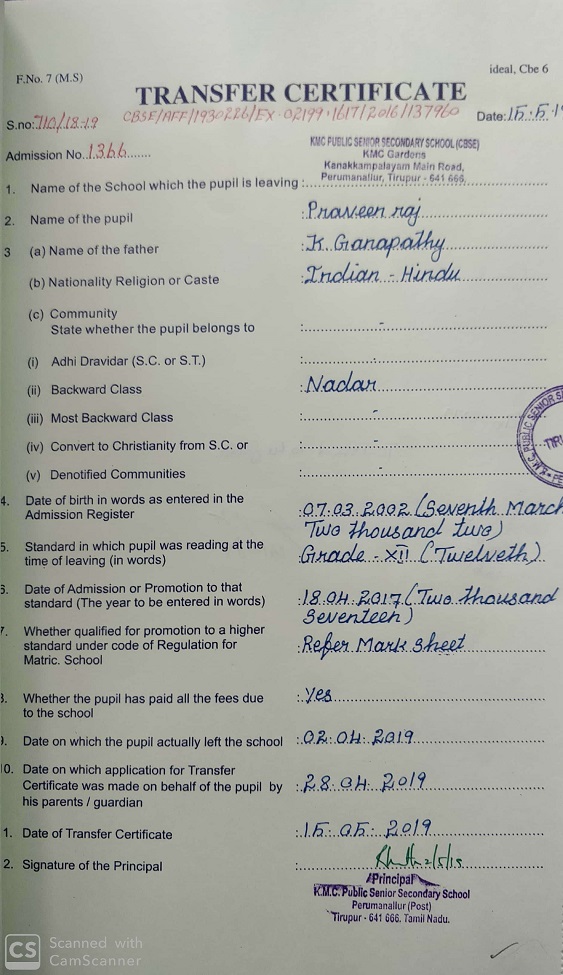 F.No. 7 (M.S)
ideal, Cbe 6
TRANSFER CERTIFICATE
S.no: 710/18-19
CBSE/AFF/1930226/EX-02199-1617/2016/137960
Date: 15.5.19
Admission No. 1366
KMC PUBLIC SENIOR SECONDARY SCHOOL (CBSE)
KMC Gardens
Kanakkampalayam Main Road,
Perumanallur, Tirupur - 641 666.
1. Name of the School which the pupil is leaving :
2. Name of the pupil : Praveen raj
3 (a) Name of the father : K. Ganapathy
(b) Nationality Religion or Caste : Indian - Hindu
(c) Community
State whether the pupil belongs to : -
(i) Adhi Dravidar (S.C. or S.T.) : -
(ii) Backward Class : Nadar
(iii) Most Backward Class : -
(iv) Convert to Christianity from S.C. or : -
(v) Denotified Communities : -
K.M.C. PUBLIC SENIOR
4. Date of birth in words as entered in the : 07.03.2002 (Seventh March
Admission Register Two thousand two)
5. Standard in which pupil was reading at the Grade - XII (Twelveth)
time of leaving (in words)
Date of Admission or Promotion to that : 18.04.2017 (Two thousand
standard (The year to be entered in words) Seventeen)
7. Whether qualified for promotion to a higher : Refer Mark Sheet
standard under code of Regulation for
Matric. School
Whether the pupil has paid all the fees due : yes
to the school
Date on which the pupil actually left the school : 02.04.2019
10. Date on which application for Transfer
Certificate was made on behalf of the pupil by : 28.04.2019
his parents / guardian
1. Date of Transfer Certificate : 15.05.2019
2. Signature of the Principal :
Principal
K.M.C. Public Senior Secondary School
Perumanallur (Post)
Tirupur - 641 666. Tamil Nadu.
CS Scanned with
CamScanner